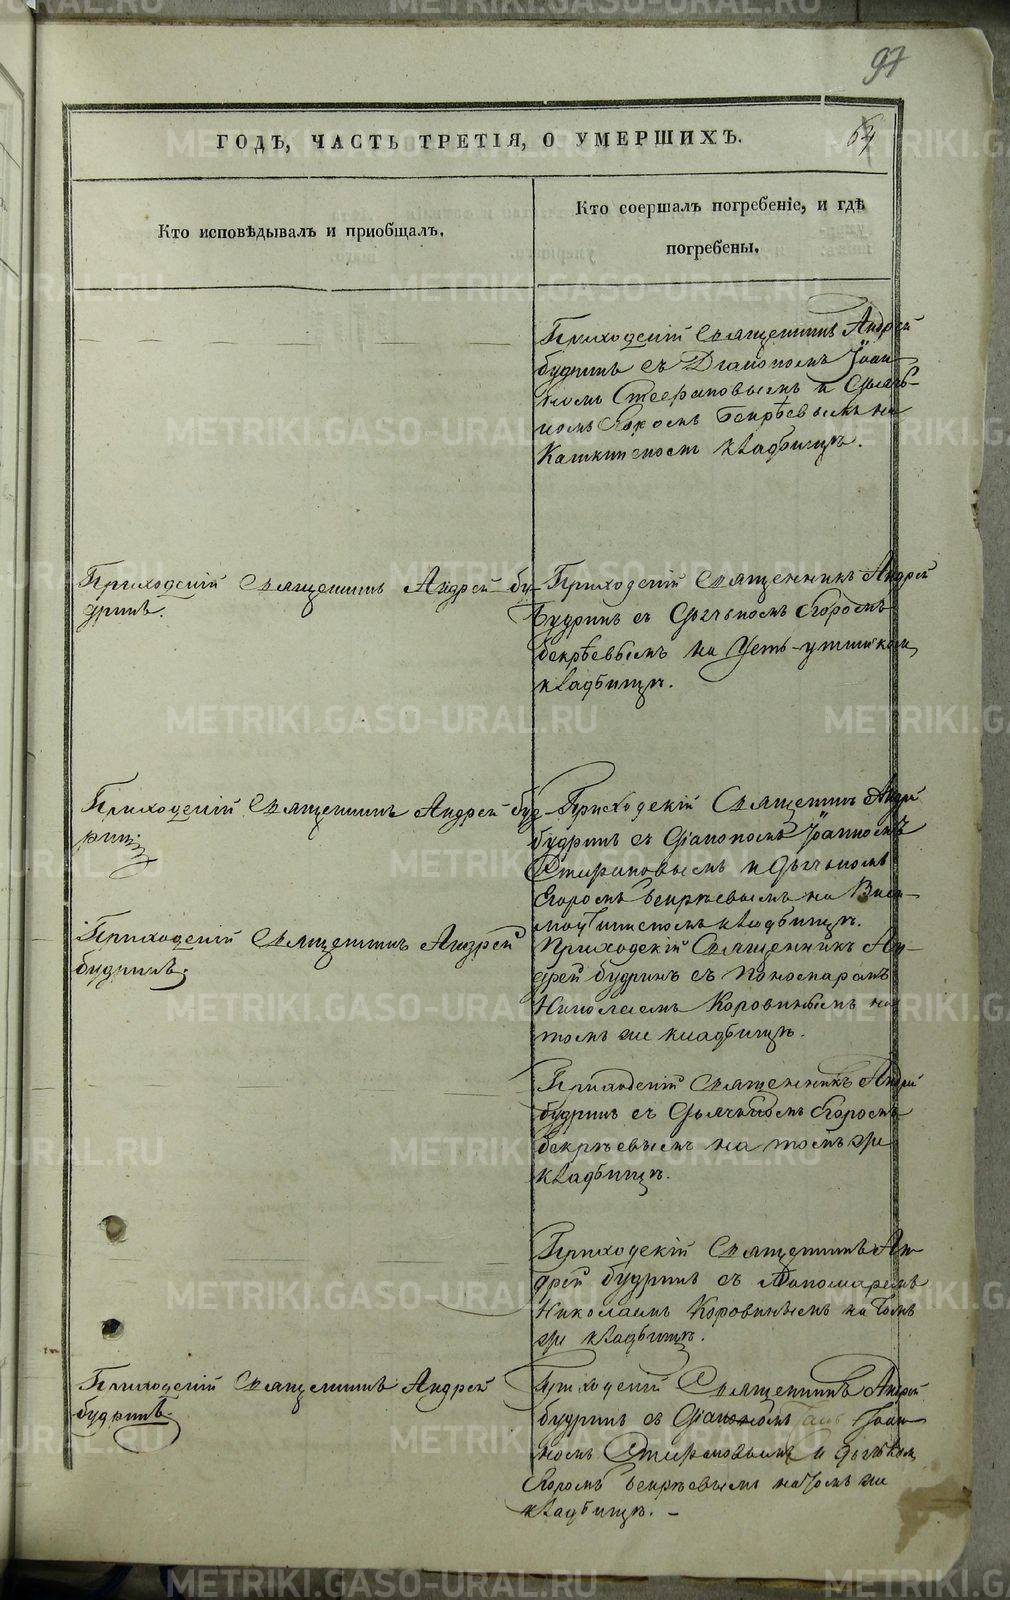 97
ГОДЪ, ЧАСТЬ ТРЕТІЯ, О УМЕРШИХЪ.
Кто исповѣдывалъ и пріобщалъ.
Кто соершалъ погребеніе, и гдѣ
погребены.
Приходскій Священникъ Андрей
Будринъ съ Діакономъ Іоан-
номъ Стефановымъ и Дьяч-
комъ Егоромъ Бекрѣевымъ на
Кашкинскомъ кладбищѣ.
Приходскій Священникъ Андрей Бу-
дринъ.
Приходскій Священникъ Андрей
Будринъ съ Дьячкомъ Егоромъ
Бекрѣевымъ на Усть-
кладбищѣ.
Приходскій Священникъ Андрей Буд-
ринъ
Приходскій Священникъ Андрей
Будринъ съ Діакономъ Іоанномъ
Стефановымъ и Дьячкомъ
Егоромъ Бекрѣевымъ на
кладбищѣ.
Приходскій Священникъ Андрей
Будринъ.
Приходскій Священникъ Ан-
дрей Будринъ съ Пономаремъ
Николаемъ Коровинымъ на
томъ же кладбищѣ.
Приходскій Священникъ Андрей
Будринъ съ Дьячкомъ Егоромъ
Бекрѣевымъ на томъ же
кладбищѣ.
Приходскій Священникъ Ан-
дрей Будринъ съ Пономаремъ
Николаемъ Коровинымъ на томъ
же кладбищѣ.
Приходскій Священникъ Андрей
Будринъ
Приходскій Священникъ Андрей
Будринъ съ Діакономъ Іоан-
номъ Стефановымъ и Дьячком
Егоромъ Бекрѣевымъ на томъ же
кладбищѣ. –
METRIKI.GASO-URAL.RU